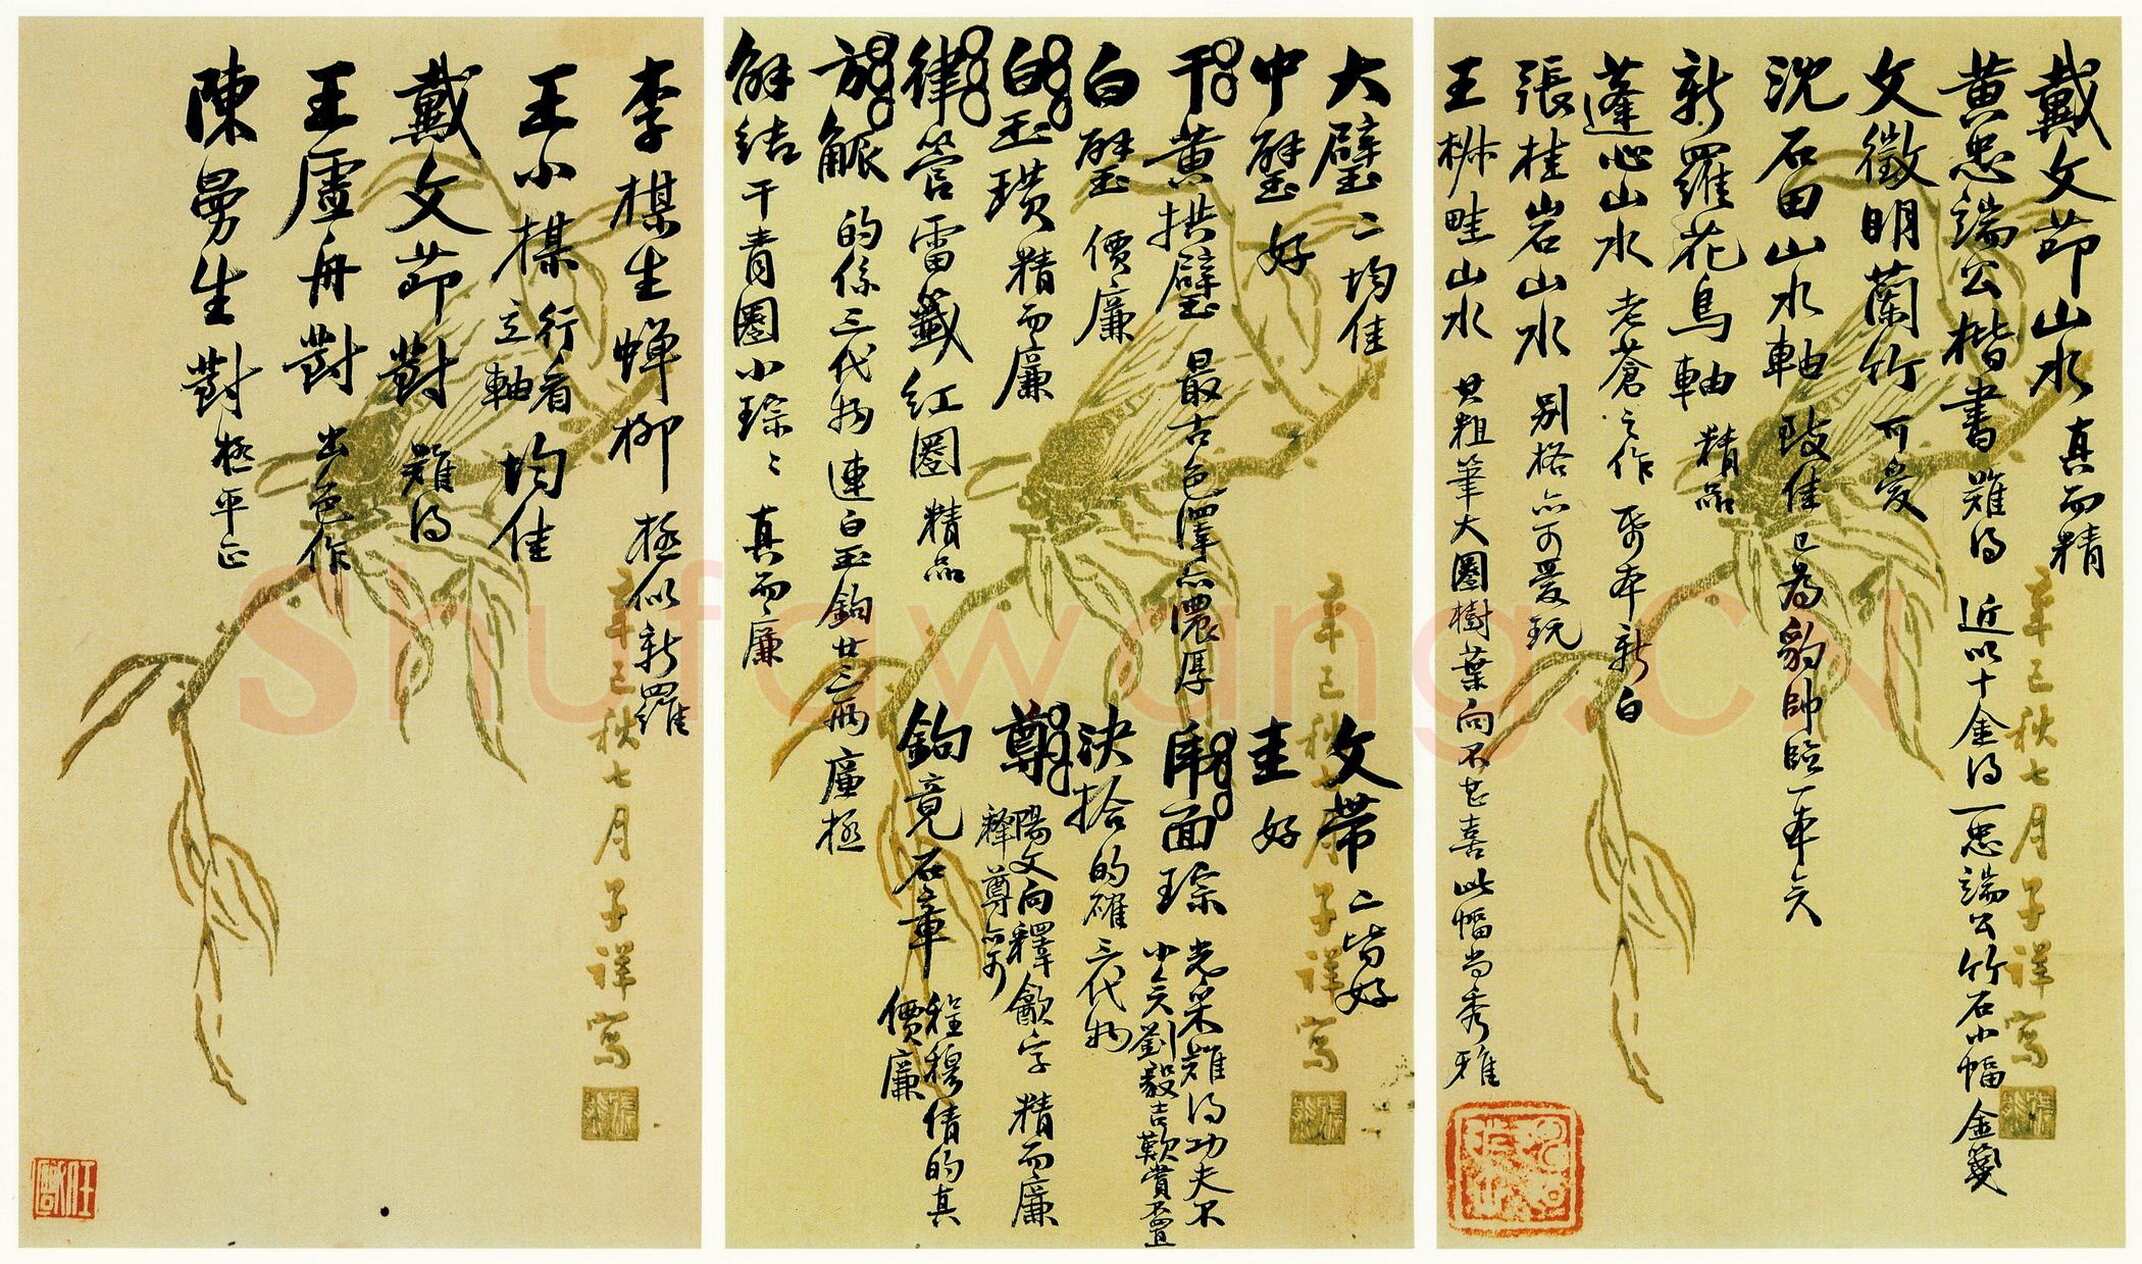 戴文節山水 真而精
黃忠端公楷書 難得 近以十金得一忠端公竹石小幅 金箋
文徵明蘭竹 可愛
沈石田山水軸 致佳 已為豹帥臨一本矣
新羅花鳥軸 精品
蓬心山水 老蒼之作 本新白
張桂岩山水 別格亦可愛玩
王椒畦山水 只粗筆大圈樹葉向不甚喜此幅尚秀雅
辛巳秋七月子祥寫
大璧 二均佳
中璧 好
黃拱璧 最古色澤亦濃厚
白璧 價廉
白玉璜 精而廉
律管雷籤紅圈 精品
觽 的係三代物 連白玉鉤廿三兩 廉極
解結 干青圈小琮 真而廉
文帶 二皆好
圭 好
面琮 光采難得功夫不
小矣劉毅吉歎賞不置
決拾 的確三代物
尊 陽文向釋龢字 精而廉
釋尊亦可
鉤竟石章 程穆倩的真
價廉
辛巳秋七月子祥寫
李楳生蟬柳 極似新羅
王小楳 行看 均佳
立軸
戴文節對 難得
王虛舟對 出色作
陳曼生對 極平正
辛巳秋七月子祥寫
Shufawang.cn